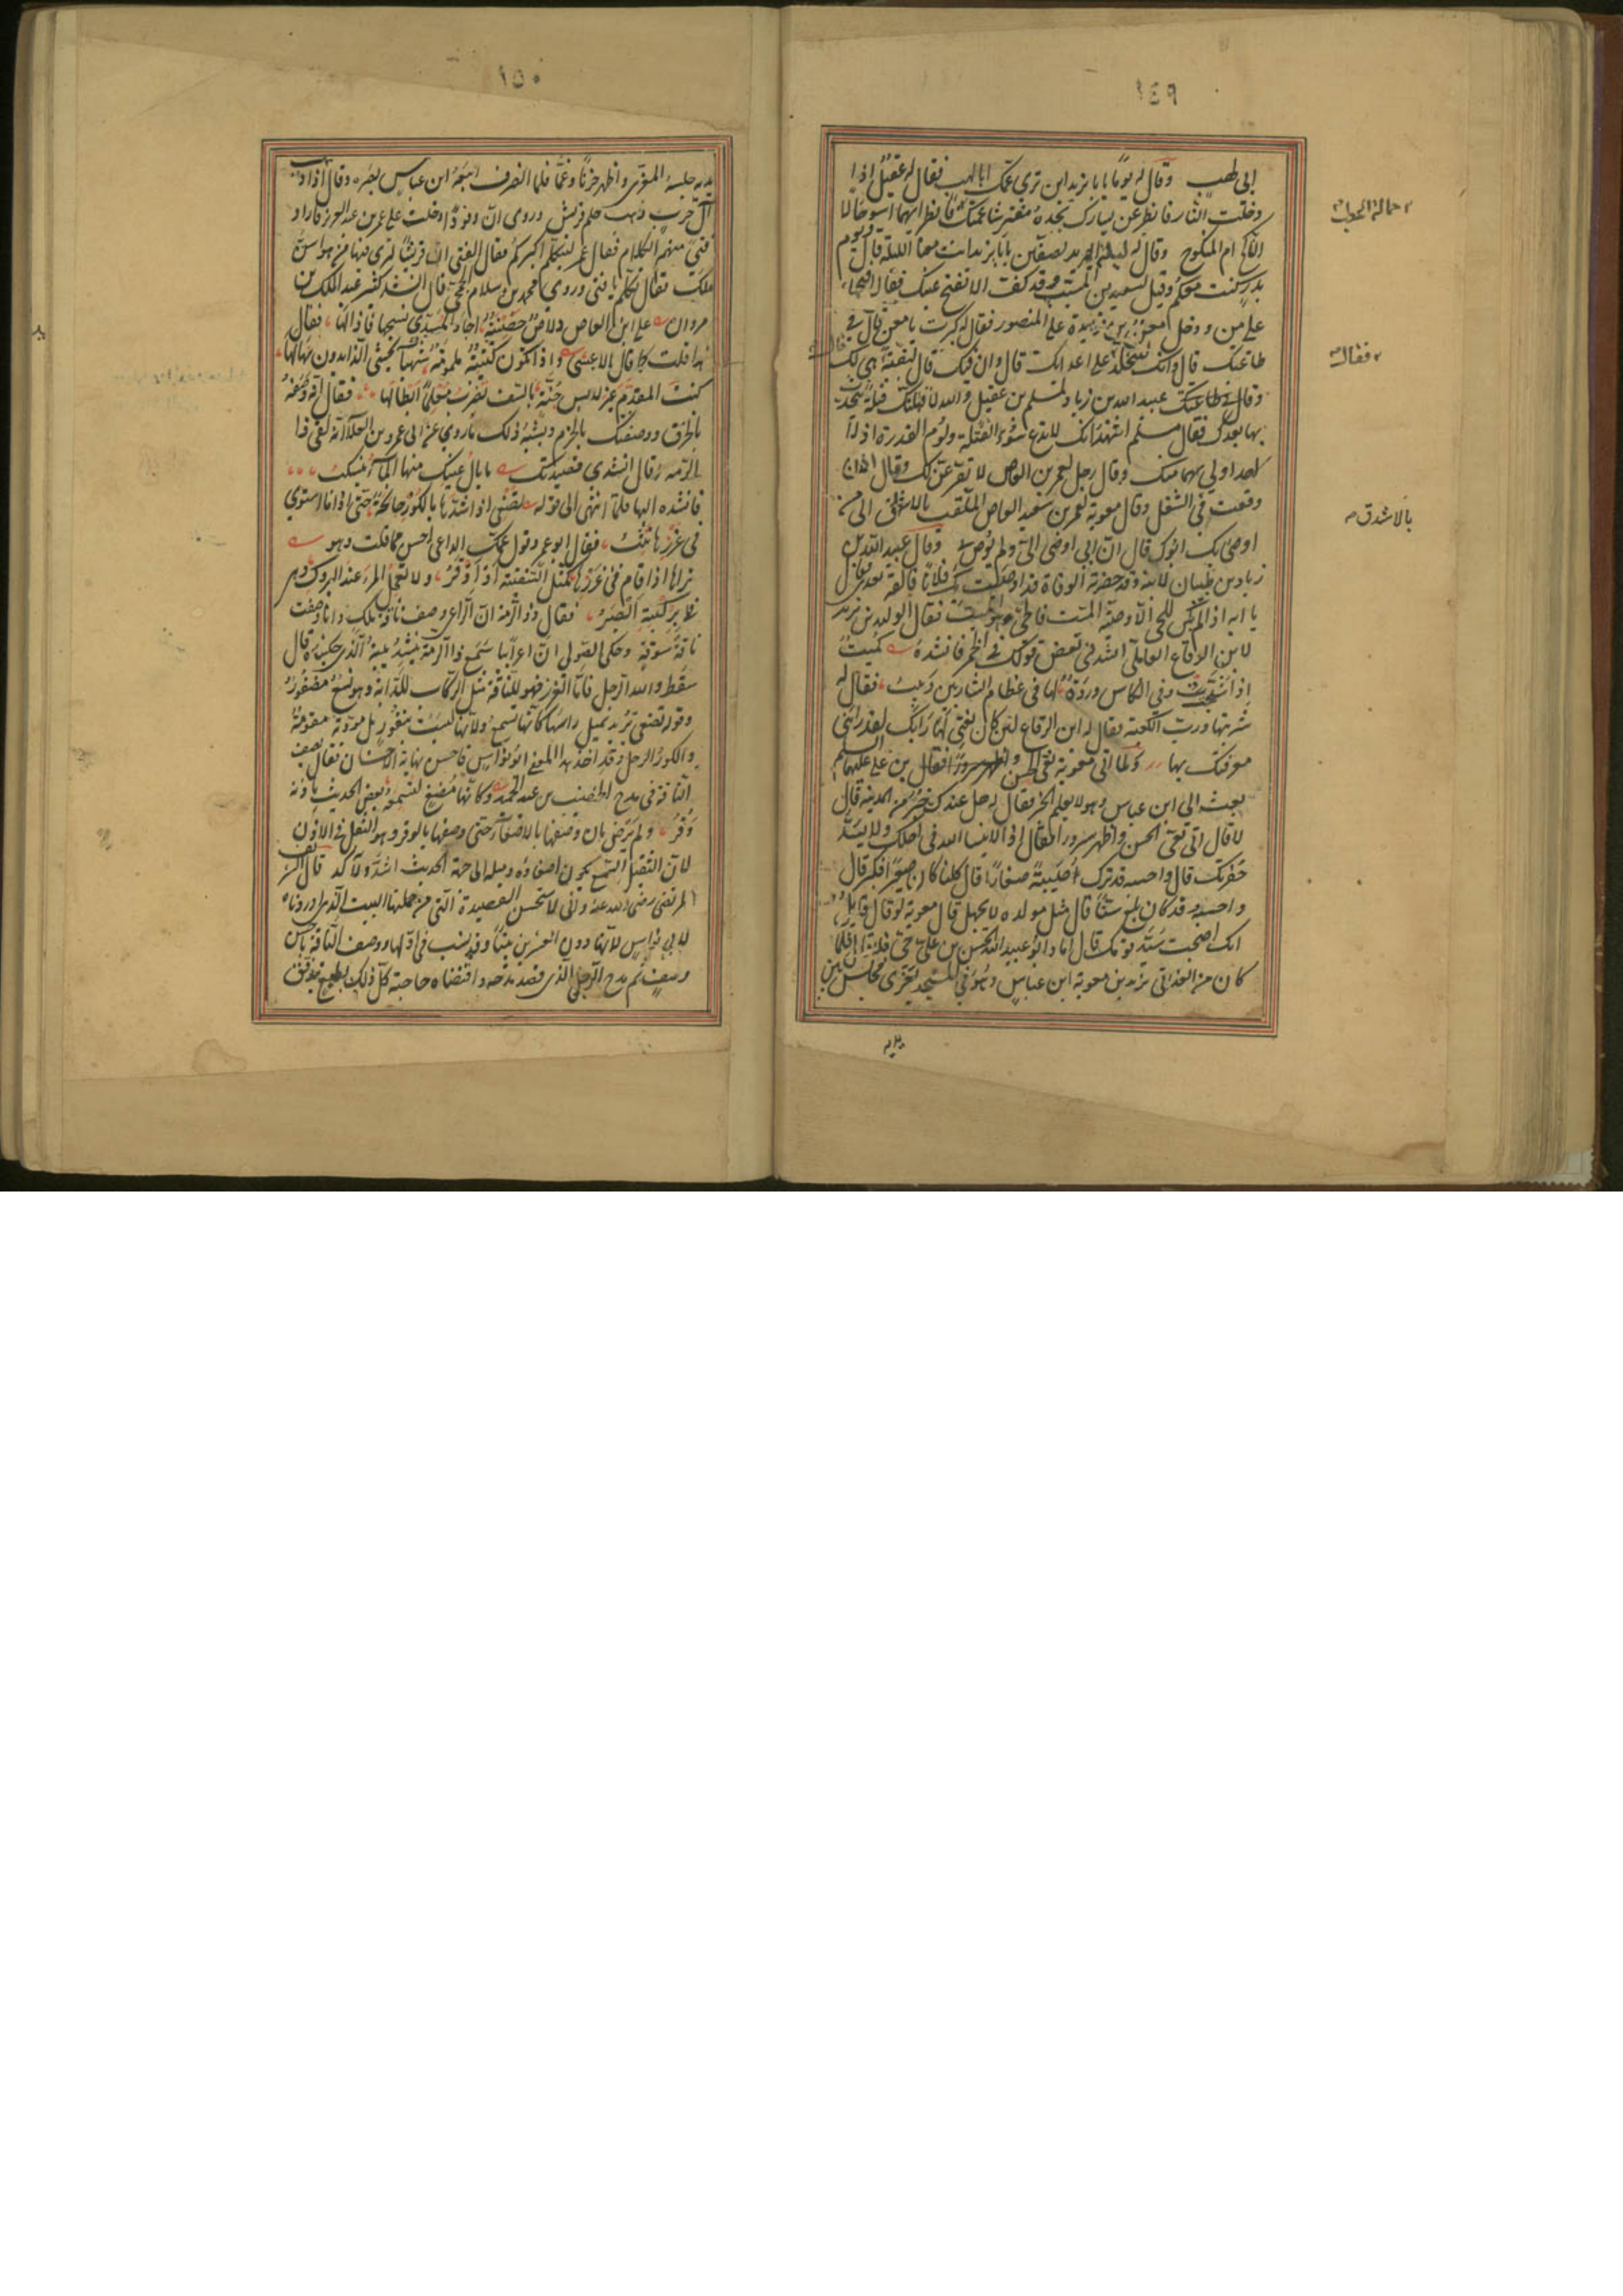 ١٤٩
ابي طهب وقال له يوما يا با يزيد اين ترى عمك ابا لهب فقال له عقيل اذا
دخلت النار فانظر عن يسارك تجده مفترشا عمتك فانظر ايهما اسوء حالا
الناكح ام المنكوح وقال له ليلة الهرير بصفين يا با يزيد انت معنا الليلة قال ويوم
بدر كنت معكم وقيل لسعيد بن المسيب وقد كف الا تقدح عينك فقال افتحها
على من ودخل معن بن زايدة على المنصور فقال له كبرت يا معن قال في
طاعتك قال وانك لتتجلد قال على اعدائك قال وان فيك لبقية قال هي لك
وقال عبيد الله بن زياد لمسلم بن عقيل والله لاقتلنك قتلة يتحدث
بها بعدك فقال مسلم اشهد انك لا تدع سوء القتلة ولؤم القدرة
لاحد اولى بهما منك وقال رجل لعمرو بن العاص لاتفرغن لك وقال اذن
وقعت في الشغل وقال معوية لعمرو بن سعيد العاص الملقب بالاشدق الى من
اوصى بك ابوك قال ان ابي اوصى الي ولم يوص بي وقال عبيد الله بن
زياد بن ظبيان لابنه وقد حضرته الوفاة قد اوصيت بك فلانا فالقه بعدي فقال
يا ابه اذا لم يكن للحي الا وصية الميت فالحي هو الميت فقال الوليد بن يزيد
لابن الرقاع العاملي انشدني بعض قولك في الخمر فانشده كميت
اذا شجت وفي الكاس وردة لها في عظام الشاربين دبيب فقال له
شربتها ورب الكعبة فقال له ابن الرقاع لئن كان نعتي لها رابك لقد رابني
معرفتك بها ولما اتى معوية نعي الحسن بن علي عليهما السلم
بعث الى ابن عباس وهو لا يعلم الخبر فقال له هل عندك خبر من المدينة قال
لا قال اتى نعي الحسن واظهر سرورا فقال اذا لا ينسا الله في اجلك ولا يسد
حفرتك قال واحسبه قد ترك اصيبية صغارا قال كلنا كان صغيرا فكبر قال
واحسبه قد كان بلغ سنا قال مثل مولده لا يجهل قال معوية لو قال قايل
انك اصبحت سيد قومك قال اما وابو عبد الله الحسين بن علي حي فلا فلما
كان من الغد اتى يزيد بن معوية ابن عباس وهو في المسجد يعزى فجلس بين
يديه
حمالة الحطب
فقال
بالاشدق
١٥٠
يديه جلسة المعزى واظهر حزنا وغما فلما انصرف اتبعه ابن عباس بصره وقال اذا ذهب
آل حرب ذهب حلم قريش وروى ان وفودا دخلت على عمر بن عبد العزيز فاراد
فتى منهم الكلام فقال عمر ليتكلم اكبركم فقال الفتى ان قريشا لترى فيها من هو اسن
منك فقال تكلم يا فتى وروى محمد بن سلام الجمحي قال انشد كثير عبد الملك بن
مروان على ابن العاص دلاص حصينة اجاد المسدي نسجها فاذالها فقال
هذا قلت كما قال الاعشى واذا تكون كتيبة ملمومة شهباء يخشى الذايدون نهالها
كنت المقدم غير لابس جنة بالسيف تضرب معلما ابطالها فقال انه وصفه
بالخرق ووصفتك بالحزم ويشبه ذلك ما روي عن ابي عمرو بن العلا انه لقى ذا
الرمة وقال انشدني قصيدتك ما بال عينك منها الماء ينسكب
فانشده اياها فلما انتهى الى قوله تصغي اذا شدها بالكور جانحة حتى اذا ما استوى
في غرزها تثب فقال ابو عمرو قول عمك الراعي احسن مما قلت وهو
تراها اذا قام في غرزها كمثل السفينة او اوقر ولا تعجل المرء عند البروك وهي
بركبته ابصر فقال ذو الرمة ان الراعي وصف ناقة ملك وانا وصفت
ناقة سوقة وحكى الصولي ان اعرابيا سمع ذا الرمة ينشد بيته الذي حكيناه قال
سقط والله الرجل فاما الغرز فهو للناقة مثل الركاب للدابة وهو نسع مضفور
وقوله تصغي يريد تميل راسها كانها تسمع ولانها ليست بنفور بل مؤدبة مقومة
والكور الرحل وقد اخذ هذا المعنى ابو نواس فاحسن نهاية الاحسان فقال يصف
الناقة في مدح الخصيب بن عبد الحميد وكانها مصغ لتسمعه بعض الحديث باذنه
وقر ولم يرض بان وصفها بالاصغاء حتى وصفها بالوقر وهو الثقل في الاذن
لان الثقيل السمع يكون اصغاؤه وميله الى جهة الحديث اشد واكد قال الشريف
المرتضى رضي الله عنه واني لاستحسن القصيدة التي من جملتها البيت الذي اوردناه
لابي نواس لانها دون العشرين بيتا وقد نسب في اولها ووصف الناقة باحسن
وصف ثم مدح الرجل الذي قصد مدحه واقتضاه حاجته كل ذلك بطبع يتدفق